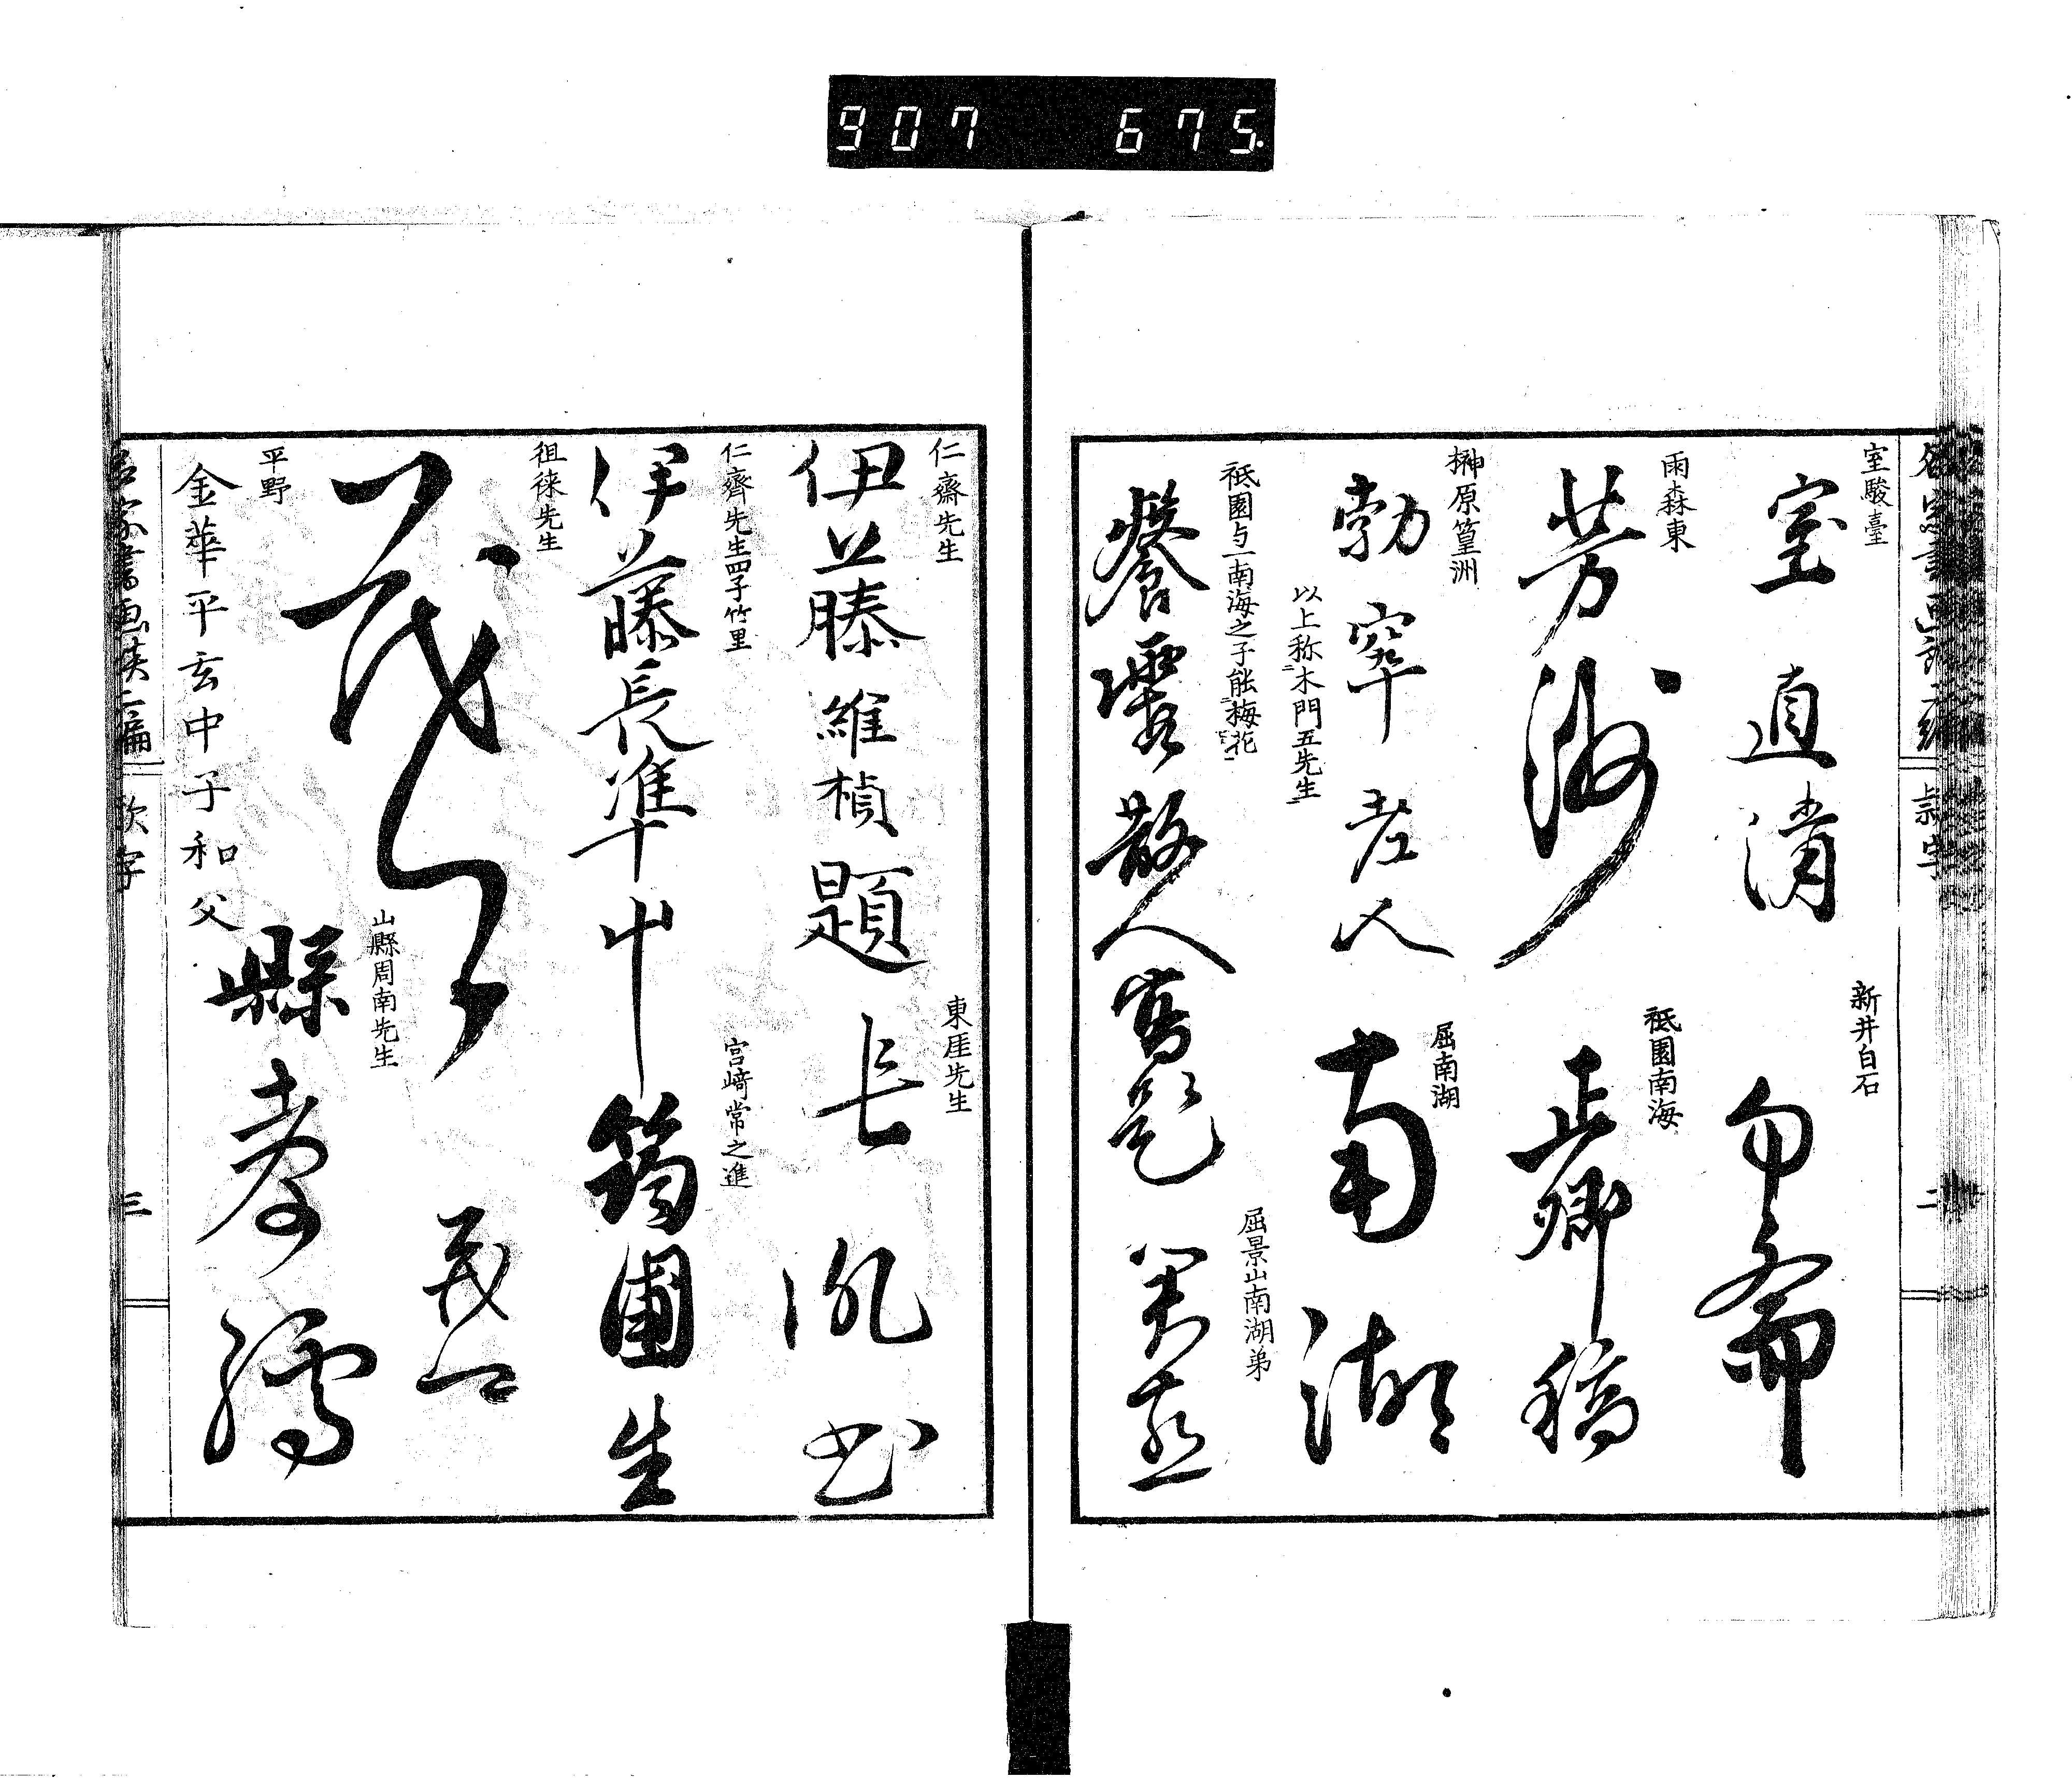 907 675
室駿臺
室直清
新井白石
勿齋
雨森東
芳洲
祇園南海
正卿稿
榊原篁洲
勃窣老人
以上称木門五先生
屈南湖
南湖
祇園与一南海之子能梅花
餐霞散人寫
屈景山南湖弟
二
仁齋先生
伊藤維楨題
東厓先生
長胤書
仁齊先生四子竹里
伊藤長準
宮﨑常之進
筠圃生
徂徠先生
茂卿
山縣周南先生
縣孝孺
平野
金華平玄中子和父
名家書画談二編 欵字 三